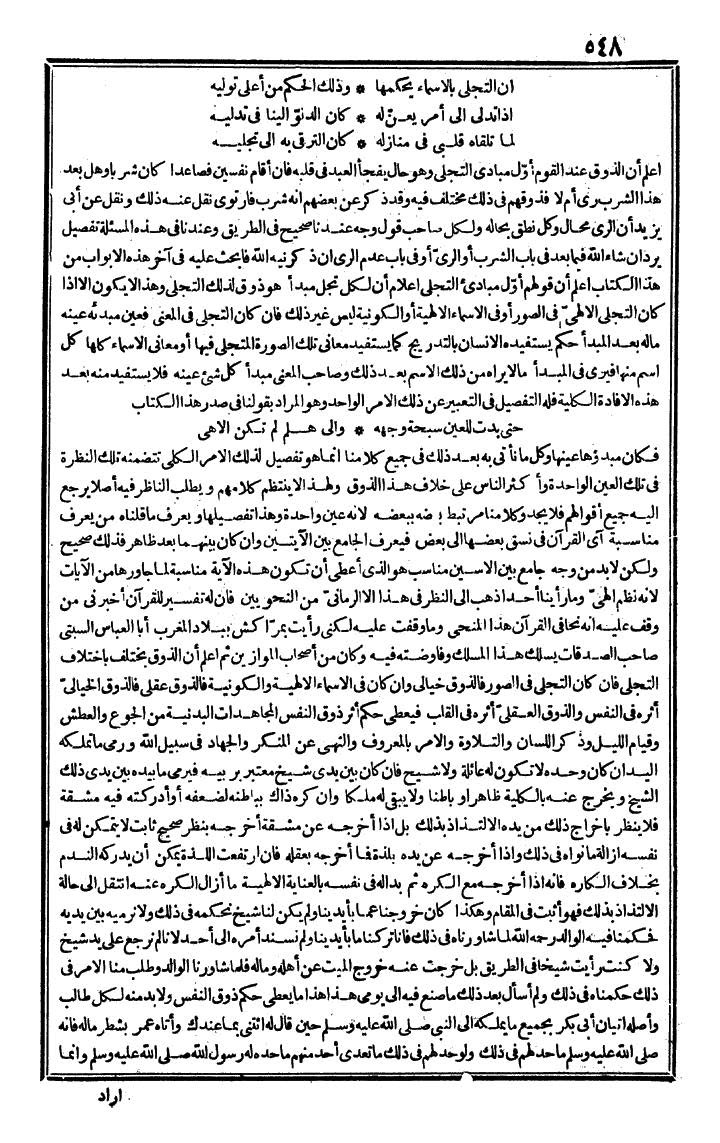 ٥٤٨
ان التجلى بالاسماء يحكمها * وذلك الحكم من أعلى توليه
اذا تدلى الى أمر يعنّ له * كان الدنوّ الينا فى تدليه
لما تلقاه قلبى فى منازله * كان الترقى به الى تجليه
اعلم أن الذوق عند القوم أوّل مبادى التجلى وهو حال يفجأ العبد فى قلبه فان أقام نفسين فصاعدا كان شربا وهل بعد
هذا الشرب رى أم لا فذوقهم فى ذلك مختلف فيه وقد ذكر عن بعضهم انه شرب فارتوى نقل عنه ذلك ونقل عن أبى
يزيد أن الرى محال وكل نطق بحاله ولكل صاحب قول وجه عندنا صحيح فى الطريق وعندنا فى هذه المسئلة تفصيل
يرد ان شاء الله فيما بعد فى باب الشرب أو الرىّ أو فى باب عدم الرى ان ذكرنيه الله فابحث عليه فى آخر هذه الابواب من
هذا الكتاب اعلم أن قولهم أوّل مبادئ التجلى اعلام أن لكل تجل مبدأ هو ذوق لذلك التجلى وهذا لا يكون الا اذا
كان التجلى الالهىّ فى الصور أو فى الاسماء الالهية أو الكونية ليس غير ذلك فان كان التجلى فى المعنى فعين مبدئه عينه
ماله بعد المبدأ حكم يستفيده الانسان بالتدريج كما يستفيد معانى تلك الصورة المتجلى فيها أو معانى الاسماء كلها كل
اسم منها فيرى فى المبدأ مالا يراه من ذلك الاسم بعد ذلك وصاحب المعنى مبدأ كل شئ عينه فلا يستفيد منه بعد
هذه الافادة الكلية فله التفصيل فى التعبير عن ذلك الامر الواحد وهو المراد بقولنا فى صدر هذا الكتاب
حتى بدت للعين سبحة وجهه * والى هلم لم تكن الاهى
فكان مبدؤها عينها وكل ما نأتى به بعد ذلك فى جميع كلامنا انما هو تفصيل لذلك الامر الكلى تتضمنه تلك النظرة
فى تلك العين الواحدة وأكثر الناس على خلاف هذا الذوق ولهذا لا ينتظم كلامهم ويطلب الناظر فيه أصلا يرجع
اليه جميع أقوالهم فلا يجد وكلامنا مرتبط بعضه ببعضه لانه عين واحدة وهذا تفصيلها ويعرف ما قلناه من يعرف
مناسبة آى القرآن فى نسق بعضها الى بعض فيعرف الجامع بين الآيتين وان كان بينهما بعد ظاهر فذلك صحيح
ولكن لابد من وجه جامع بين الاسين مناسب هو الذى أعطى أن تكون هذه الآية مناسبة لما جاورها من الآيات
لانه نظم الهىّ وما رأينا أحدا ذهب الى النظر فى هذا الا الرمانى من النحويين فان له تفسير للقرآن أخبرنى من
وقف عليه انه نحا فى القرآن هذا المنحى وما وقفت عليه لكنى رأيت بمراكش ببلاد المغرب أبا العباس السبتى
صاحب الصدقات يسلك هذا المسلك وفاوضته فيه وكان من أصحاب الموازين ثم اعلم أن الذوق مختلف باختلاف
التجلى فان كان التجلى فى الصور فالذوق خيالى وان كان فى الاسماء الالهية والكونية فالذوق عقلى فالذوق الخيالىّ
أثره فى النفس والذوق العقلىّ أثره فى القلب فيعطى حكم أثر ذوق النفس المجاهدات البدنية من الجوع والعطش
وقيام الليل وذكر اللسان والتلاوة والامر بالمعروف والنهى عن المنكر والجهاد فى سبيل الله ورمى ما تملكه
اليدان كان وحده لا تكون له عائلة ولا شيخ فان كان بين يدى شيخ معتبر يربيه فيرمى ما بيده بين يدى ذلك
الشيخ ويخرج عنه بالكلية ظاهرا وباطنا ولا يبقى له ملكا وان كره ذاك بباطنه لضعفه أو أدركته فيه مشقة
فلا ينظر باخراج ذلك من يده الالتذاذ بذلك بل اذا أخرجه عن مشقة أخرجه بنظر صحيح ثابت لا يتمكن له فى
نفسه ازالة ما نواه فى ذلك واذا أخرجه عن يده بلذة فما أخرجه بعقله فان ارتفعت اللذة يمكن أن يدركه الندم
بخلاف الكاره فانه اذا أخرجه مع الكره ثم بداله فى نفسه بالعناية الالهية ما أزال الكره عنه انتقل الى حالة
الالتذاذ بذلك فهو أثبت فى المقام وهكذا كان خروجنا عما بأيدينا ولم يكن لنا شيخ نحكمه فى ذلك ولا نرميه بين يديه
فحكمنا فيه الوالد رحمه الله لما شاورناه فى ذلك فانا تركنا ما بأيدينا ولم نسند أمره الى أحد لانا لم نرجع على يد شيخ
ولا كنت رأيت شيخا فى الطريق بل خرجت عنه خروج الميت عن أهله وماله فلما شاورنا الوالد وطلب منا الامر فى
ذلك حكمناه فى ذلك ولم أسأل بعد ذلك ما صنع فيه الى يومى هذا هذا ما يعطى حكم ذوق النفس ولابد منه لكل طالب
وأصله اتيان أبى بكر بجميع ما يملكه الى النبى صلى الله عليه وسلم حين قال له ائتنى بما عندك وأتاه عمر بشطر ماله فانه
صلى الله عليه وسلم ما حدّ لهم فى ذلك ولو حدّ لهم فى ذلك ما تعدى أحد منهم ما حده له رسول الله صلى الله عليه وسلم وانما
اراد